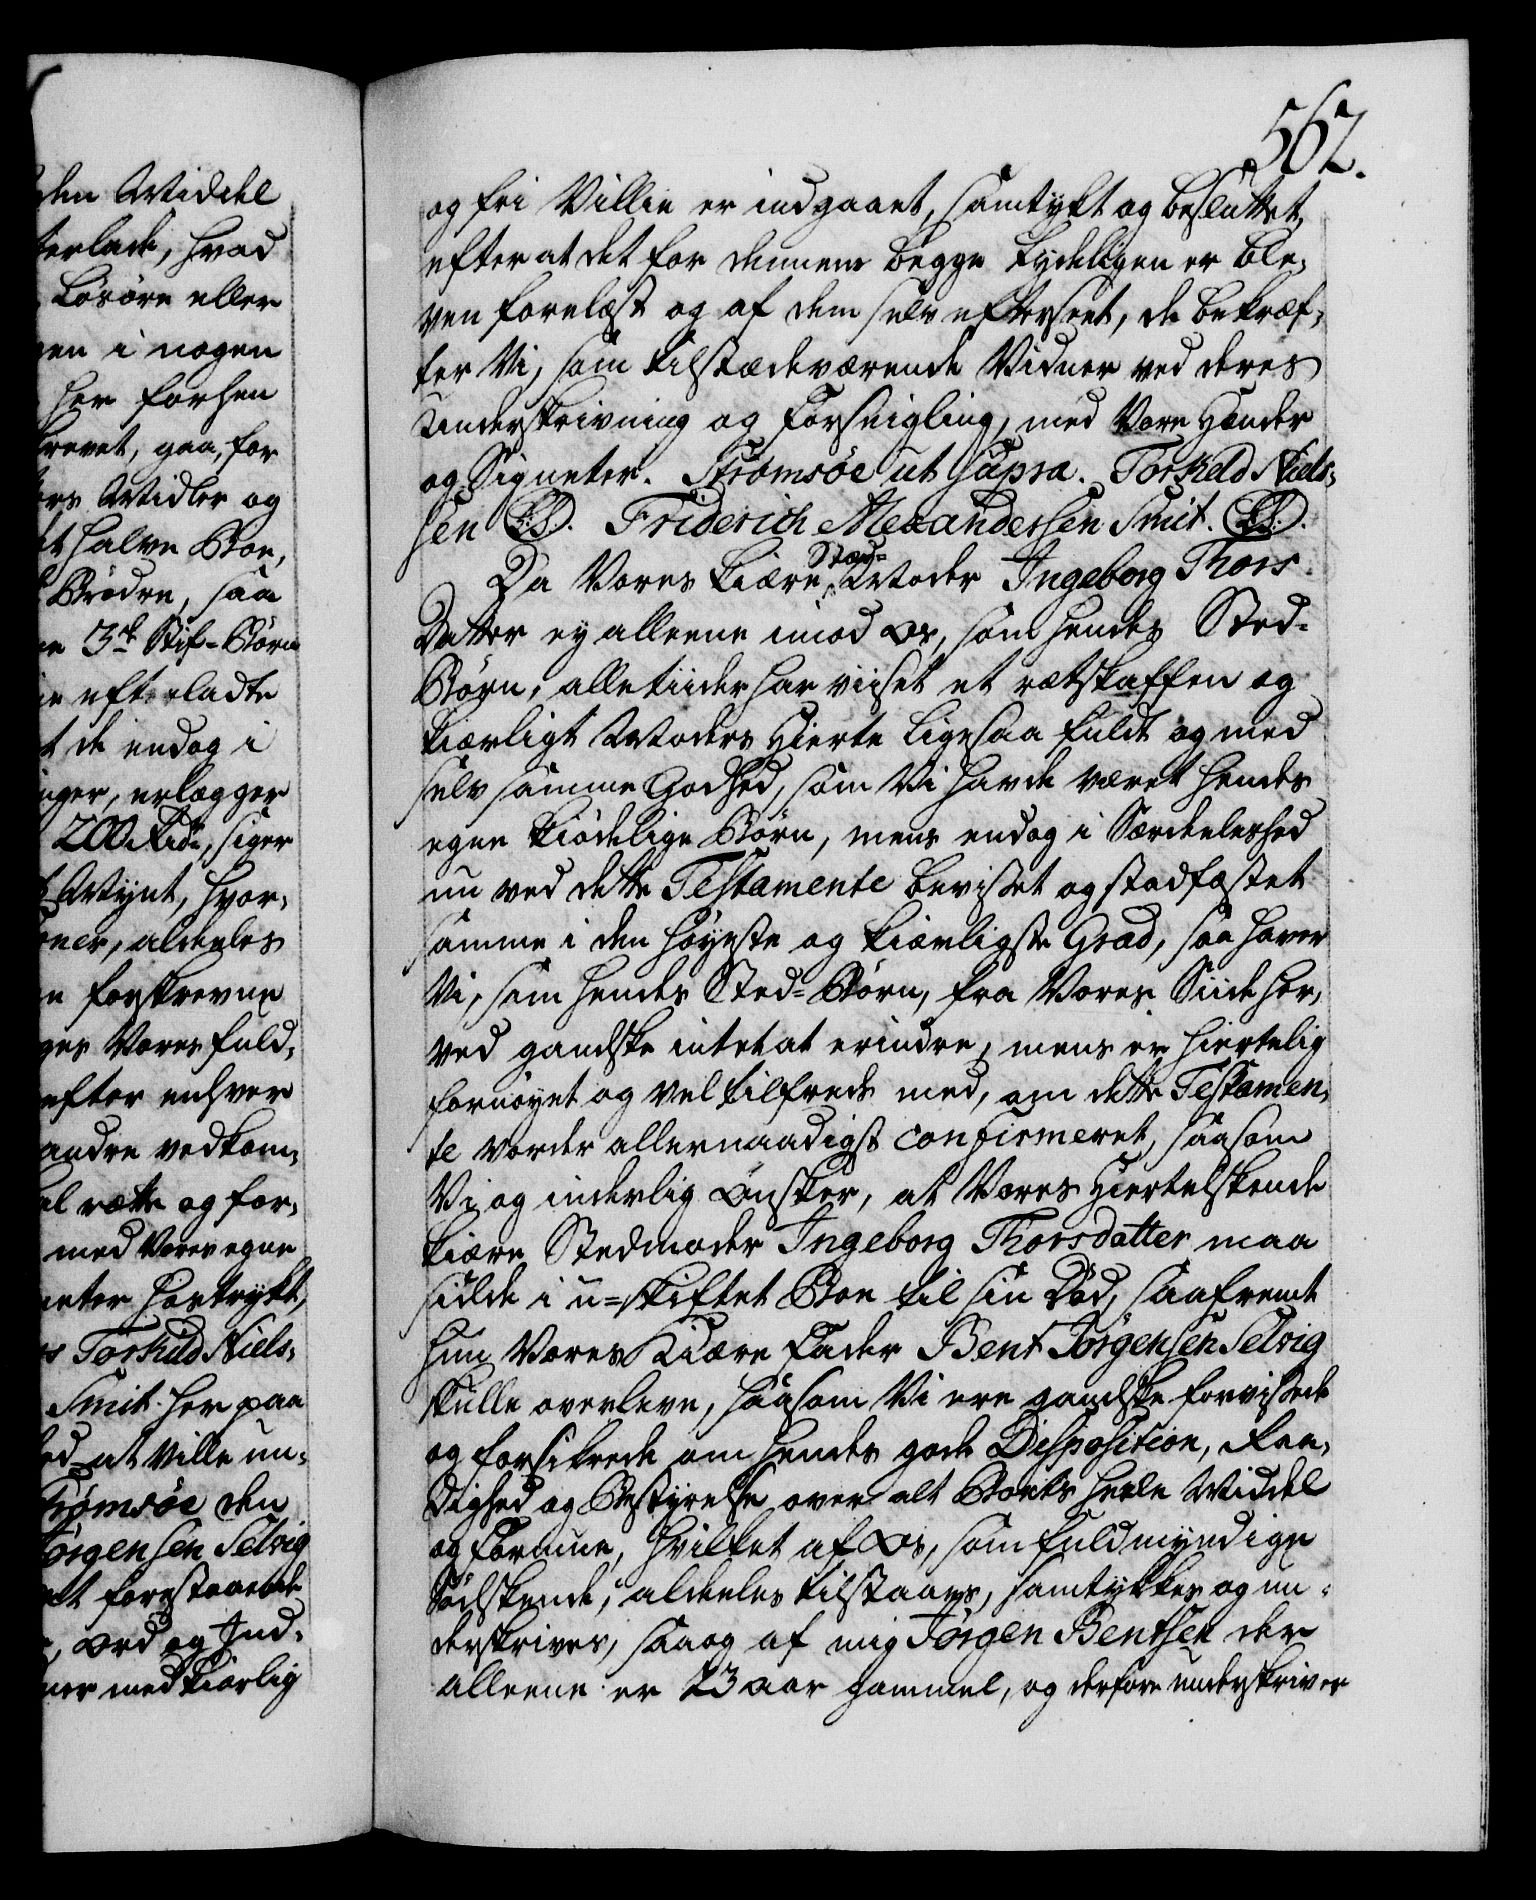 562.
den Middel
terlade, hvad
Løsøre eller
en i nogen
her forhen
krevet, gaa, for
ers Midler og
t halve Boe,
Brødre, saa
ne 3de Stif-Børn
e efterladte
t de endog i
nger, erlægger
200 Rdr, siger
Mynt, hvor-
oner, aldeeles
n forskrevne
ges Vores fuld-
efter enhver
andre vedkom-
al rætte og for-
med Vores egne
neter hostrykt,
s Torkild Niels-
Smit her paa
ed at ville un-
Trømsøe den
Jørgensen Selvig
et forestaaende
, Ord og Ind-
ner med kiærlig
og fri Villie er indgaaet, samtykt og besluttet,
efter at det for dennem begge tydeligen er ble-
ven forelæst og af dem selv efterseet, de bekræf-
ter Vi, som tilstædeværende Vidner ved deres
Underskrivning og Forseigling, med Vore Hænder
og Signeter. Strømsøe ut supra. Torkild Niels-
sen (L.S.). Friderich Alexandersen Smit. (L.S.).
Da Vores kiære Stæd-Moder Ingeborg Thors
Datter ey alleene imod Os, som hendes Sted-
Børn, alletiider har viiset et rætskaffen og
kiærligt Moders Hierte ligesaa fuldt og med
selv samme Godhed, som Vi havde været hendes
egne kiødelige Børn, mens endog i Særdeeleshed
nu ved dette Testamente beviset og stadfæstet
samme i den høyeste og kiærligste Grad, saa haver
Vi, som hendes Sted-Børn, fra Vores Siide her-
ved gandske intet at erindre, mens er hiertelig
fornøyet og vel tilfreds med, om dette Testamen-
te vorder allernaadigst confirmeret, saasom
Vi og inderlig Ønsker, at Vores Hiertelskende
kiære Stedmoder Ingeborg Thorsdatter maa
sidde i u-skiftet Boe til sin Død, saafremt
hun Vores Kiære Fader Bent Jørgensen Selvig
skulle overleve, saasom Vi ere gandske forvissede
og forsikrede om hendes gode Disposition, Raa-
dighed og Bestyrelse over alt Boets heele Middel
og Formue, hvilket af Os, som fuldmyndige
Sødskende, aldeeles tilstaaes, samtykkes og un-
derskrives, saa og af mig Jørgen Bentsen der
alleene er 23 aar gammel, og derfore underskriver